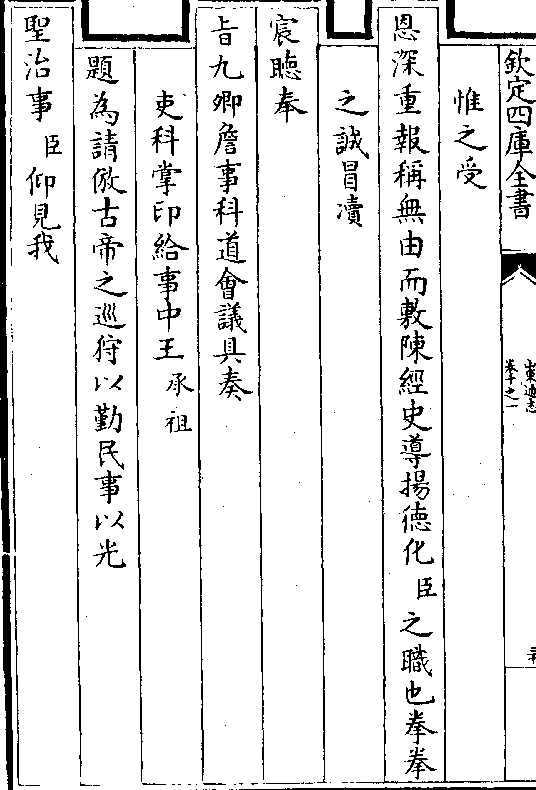 欽定四庫全書
山東通志
卷十之一
惟之受
恩深重報稱無由而敷陳經史導揚德化臣之職也拳拳
之誠冒瀆
宸聽奉
旨九卿詹事科道會議具奏
吏科掌印給事中王承祖
題為請倣古帝之巡狩以勤民事以光
聖治事臣仰見我